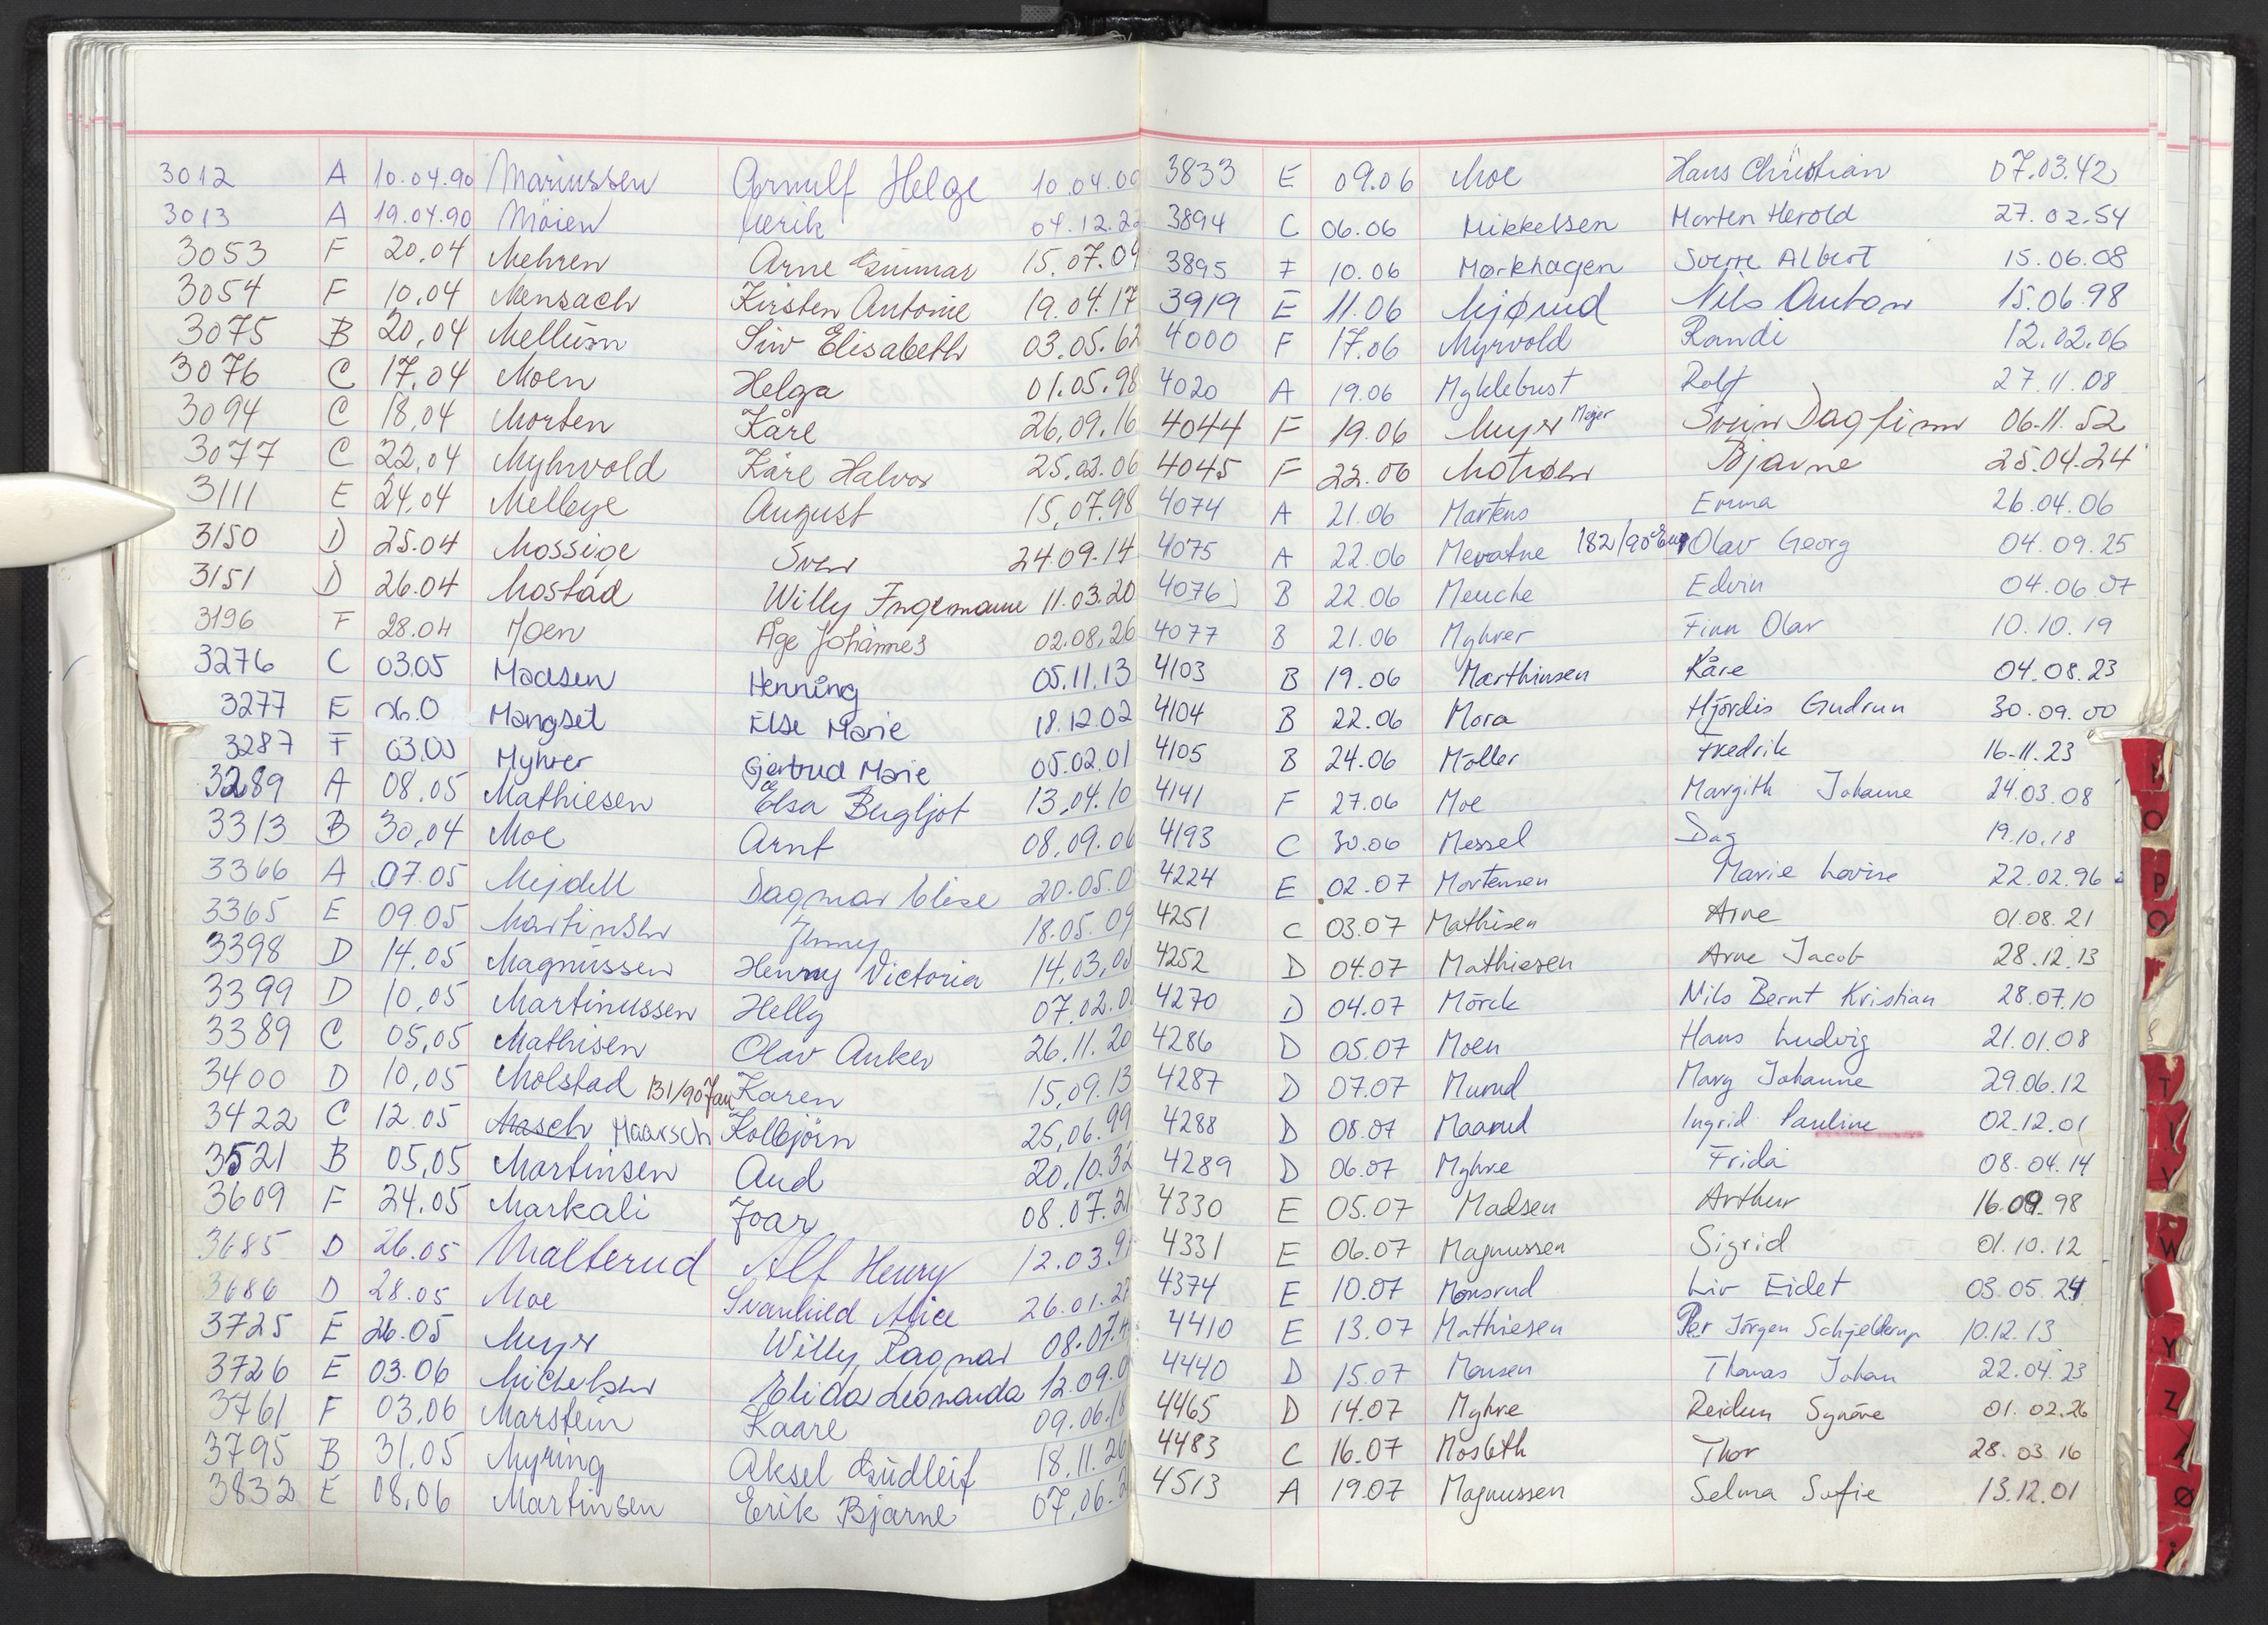 3012 A 10.04.90 Mariussen Arnulf Helge 10.04.00
3013 A 19.04.90 Möien Ulrik 04.12.22
3053 F 20.04 Mehren Arne Gunnar 15.07.04
3054 F 10.04 Mensach Kirsten Antonie 19.04.17
3075 B 20,04 Mellum Siw Elisabeth 03.05.62
3076 C 17.04 Moen Helga 01.05.98
3094 C 18,04 Morten Kåre 26,09.16
3077 C 22,04 Myhrvold Kåre Halvor 25.02.06
3111 E 24,04 Mellbye August 15,07.98
3150 D 25.04 Mossige Sven 24.09.14
3151 D 26.04 Mostad Willy Ingemann 11.03.20
3196 F 28.04 Moen Åge Johannes 02.08,26
3276 C 03.05 Madsen Henning 05.11.13
3277 E 06.0 Mangset Else Marie 18.12.02
3287 F 03.05 Myhrer Gjertrud Marie 05.02.01
3289 A 08.05 Mathiesen Elsa Bergljot 13,04.10
3313 B 30,04 Moe Arnt 08,09.06
3366 A 07.05 Mejdell Dagmar Elise 20.05.0
3365 E 09.05 Martinsen Jenny 18.05.09
3398 D 14.05 Magnussen Henny Victoria 14,03,00
3399 D 10,05 Martinussen Helly 07.02.0
3389 C 05,05 Mathisen Olav Anker 26.11.20
3400 D 10,05 Molstad 131/90 Jan Karen 15,09.13
3422 C 12.05 Masch Maarsch Kolbjörn 25,06.99
3521 B 05,05 Martinsen Aud 20,10.32
3609 F 24.05 Markali Joar 08.07.21
3685 D 26.05 Malterud Alf Henry 12.03.9
3686 D 28.05 Moe Svanhild Alice 26.01.27
3725 E 26.05 Meyer Willy Ragnar 08.07.
3726 E 03.06 Michelsen Elida Leonarda 12.09.0
3761 F 03,06 Marstein Kaare 09.06.18
3795 B 31,05 Myring Aksel Gudleif 18.11.26
3832 E 08,06 Martinsen Erik Bjarne 07,06.2
3833 E 09.06 Moe Hans Christian 07.03.42
3894 C 06.06 Mikkelsen Morten Herold 27.02.54
3895 F 10.06 Mørkhagen Sverre Albert 15.06.08
3919 E 11.06 Mjørud Nils Anton 15.06.98
4000 F 17.06 Myrvold Randi 12.02.06
4020 A 19.06 Myklebust Rolf 27.11.08
4044 F 19.06 Meyer Mejer Svein Dagfinn 06.11.52
4045 F 22.06 Bjarne 25.04.24
4074 A 21.06 Martens Emma 26.04.06
4075 A 22.06 Mevatne 182/90 Olav Georg 04.09.25
4076 B 22.06 Menche Edvin 04.06.07
4077 B 21.06 Myhrer Finn Olav 10.10.19
4103 B 19.06 Marthinsen Kåre 04.08.23
4104 B 22.06 Mora Hjördis Gudrun 30.09.00
4105 B 24.06 Möller Fredrik 16.11.23
4141 F 27.06 Moe Margith Johanne 24.03.08
4193 C 30.06 Messel Dag 19.10.18
4224 E 02.07 Mortensen Marie Lovise 22.02.96
4251 C 03.07 Mathisen Arne 01.08.21
4252 D 04.07 Mathiesen Arne Jacob 28.12.13
4270 D 04.07 Mörck Nils Bernt Kristian 28.07.10
4286 D 05.07 Moen Hans Ludvig 21.01.08
4287 D 07.07 Murud Marg Johanne 29.06.12
4288 D 08.07 Maarud Ingrid Pauline 02.12.01
4289 D 06.07 Myhre Frida 08.04.14
4330 E 05.07 Madsen Arthur 16.09.98
4331 E 06.07 Magnussen Sigrid 01.10.12
4374 E 10.07 Monsrud Liv Eidet 03.05.24
4410 E 13.07 Mathiesen Per Jörgen Schjelderup 10.12.13
4440 D 15.07 Monsen Thomas Johan 22.04.23
4465 D 14.07 Myhre Reidun Synöve 01.02.26
4483 C 16.07 Mosleth Thor 28.03.16
4513 A 19.07 Magnussen Selma Sofie 13.12.01
O
P
Q
T
W
Y
Z
Ø